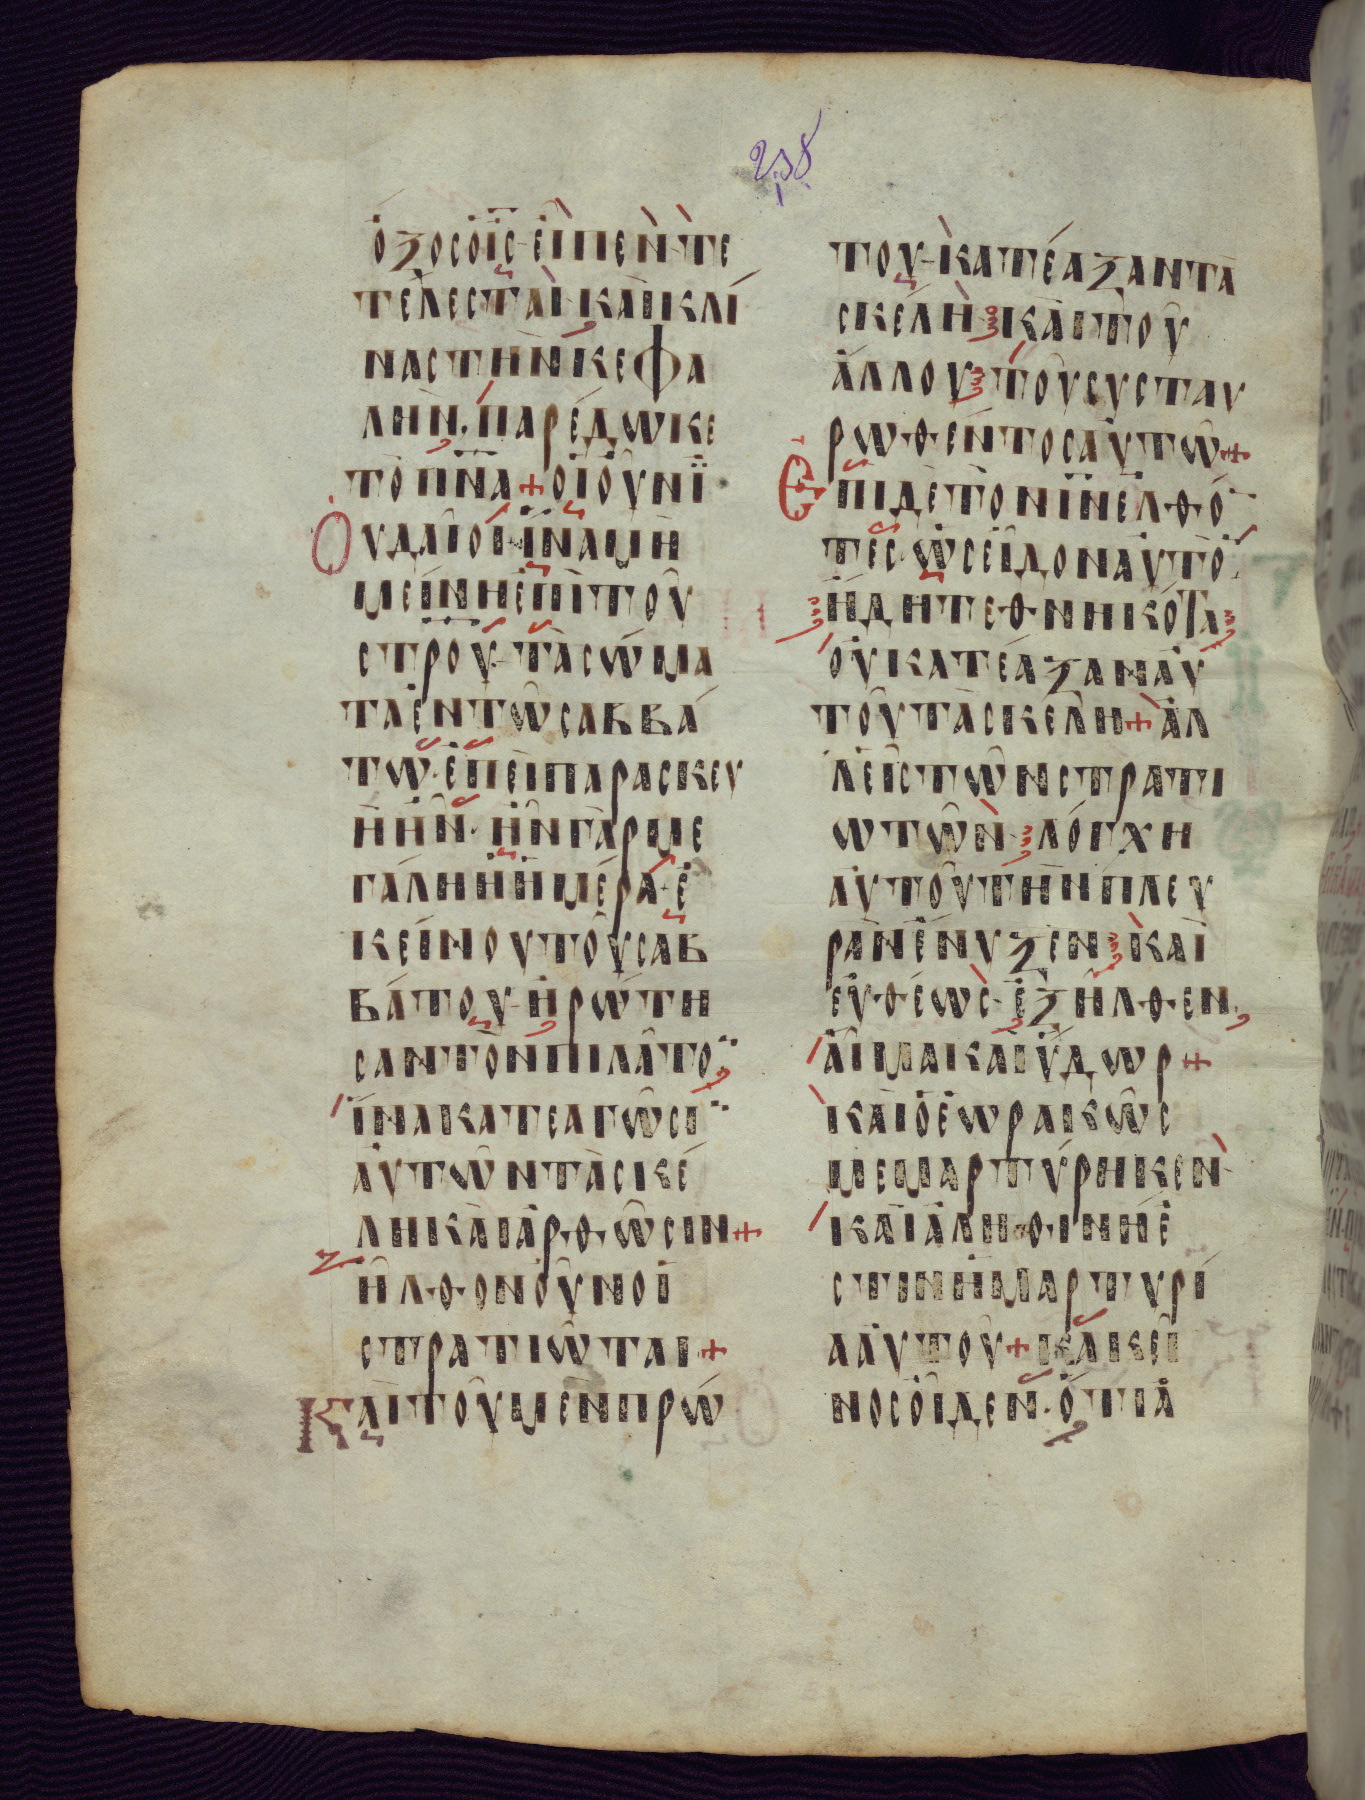 238
ὄζοσ ὁ ῑσ̄ εἶπεν τε
τέλεσται καὶ κλί
νασ τὴν κεφα
λὴν. παρέδωκε
τὸ π̅ν̅α + οἱ οὖν ϊ
ουδαῖοι ἵνα μὴ
μείνη ἐπὶ τοῦ
σ̅τ̅ρ̅ου τὰ σώμα
τα ἐν τῶ σαββά
τω. ἐπεὶ παρασκευ
ὴ ἦν. ἦν γὰρ με
γάλη ἡ ἡμέρα ἐ
κείνου τοῦ σαβ
βάτου ἠρώτη
σαν τὸν πιλᾶτο
ἵνα κατεαγῶσι
αὐτῶν τὰ σκέ
λη καὶ ἀρθῶσιν +
ἦλθον οὖν οἱ
στρατιῶται +
Καὶ τοῦ μὲν πρώ
του κατέαξαν τὰ
σκέλη καὶ τοῦ
ἄλλου τοῦ συσταυ
ρωθέντοσ αὐτῶ +
Ἐπὶ δὲ τὸν ῑν̄ ἐλθό
τεσ ὡσ εἶδον αὐτὸ
ἤδη τεθνηκότα
οὐ κατέαξαν αὐ
τοῦ τὰ σκέλη + ἀλ
λ εἷσ τῶν στρατι
ωτῶν λόγχη
αὐτοῦ τὴν πλευ
ρὰν ἔνυξεν καὶ
εὐθέωσ ἐξῆλθεν
αἷμα καὶ ὕδωρ +
καὶ ὁ ἑωρακῶσ
μεμαρτύρηκεν
καὶ ἀληθινὴ ἐ
στιν ἡ μαρτυρί
α αὐτοῦ + κἀκεῖ
νοσ οἶδεν. ὅτι ἀ